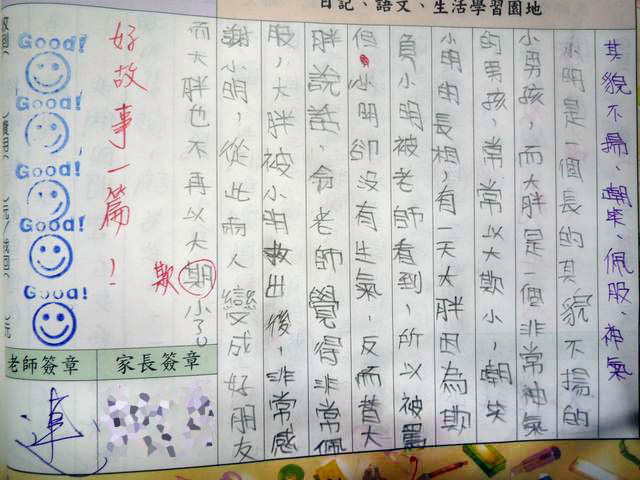 日記、語文、生活學習園地
其貌不揚、嘲笑、佩服、神氣
小明是一個長的其貌不揚的
小男孩，而大胖是一個非常神氣
的男孩，常常以大欺小，嘲笑
小明的長相，有一天大胖因為欺
負小明被老師看到，所以被罵
但小明卻沒有生氣，反而替大
胖說話，令老師覺得非常佩
服，大胖被小明救出後，非常感
謝小明，從此兩人變成好朋友
而大胖也不再以大期小了。
欺
好故事一篇！
Good!
Good!
Good!
Good!
Good!
家長簽章
老師簽章
連